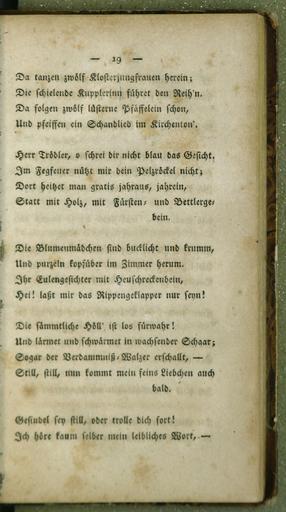 — 19 —
Da tanzen zwölf Klosterjungfrauen herein;
Die schielende Kupplerinn führet den Reih'n.
Da folgen zwölf lüsterne Pfäffelein schon,
Und pfeiffen ein Schandlied im Kirchenton'.
Herr Trödler, o schrei dir nicht blau das Gesicht,
Im Fegfeuer nützt mir dein Pelzröckel nicht;
Dort heitzet man gratis jahraus, jahrein,
Statt mit Holz, mit Fürsten- und Bettlerge-
bein.
Die Blumenmädchen sind bucklicht und krumm,
Und purzeln kopfüber im Zimmer herum.
Ihr Eulengesichter mit Heuschreckenbein,
Hei! laßt mir das Rippengeklapper nur seyn!
Die sämmtliche Höll' ist los fürwahr!
Und lärmet und schwärmet in wachsender Schaar;
Sogar der Verdammniß-Walzer erschallt, —
Still, still, nun kommt mein feins Liebchen auch
bald.
Gesindel sey still, oder trolle dich fort!
Ich höre kaum selber mein leibliches Wort, —